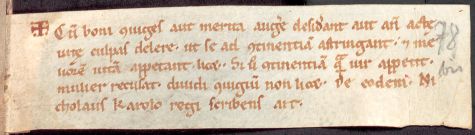 Cū boni ꝯiuges aut merita augꝰe desid̓ant aut an̄ acte
uite culpas delere . ut se ad ꝯtinentiā astringant . ⁊ me
liorē uitā appetant . licꝫ . Si ū ꝯtinentiā quā uir appetit .
mulier recusat . diuidi ꝯiugiū non licꝫ . De eodem . Ni
cholaus Karolo regi scribens ait .
78
bis